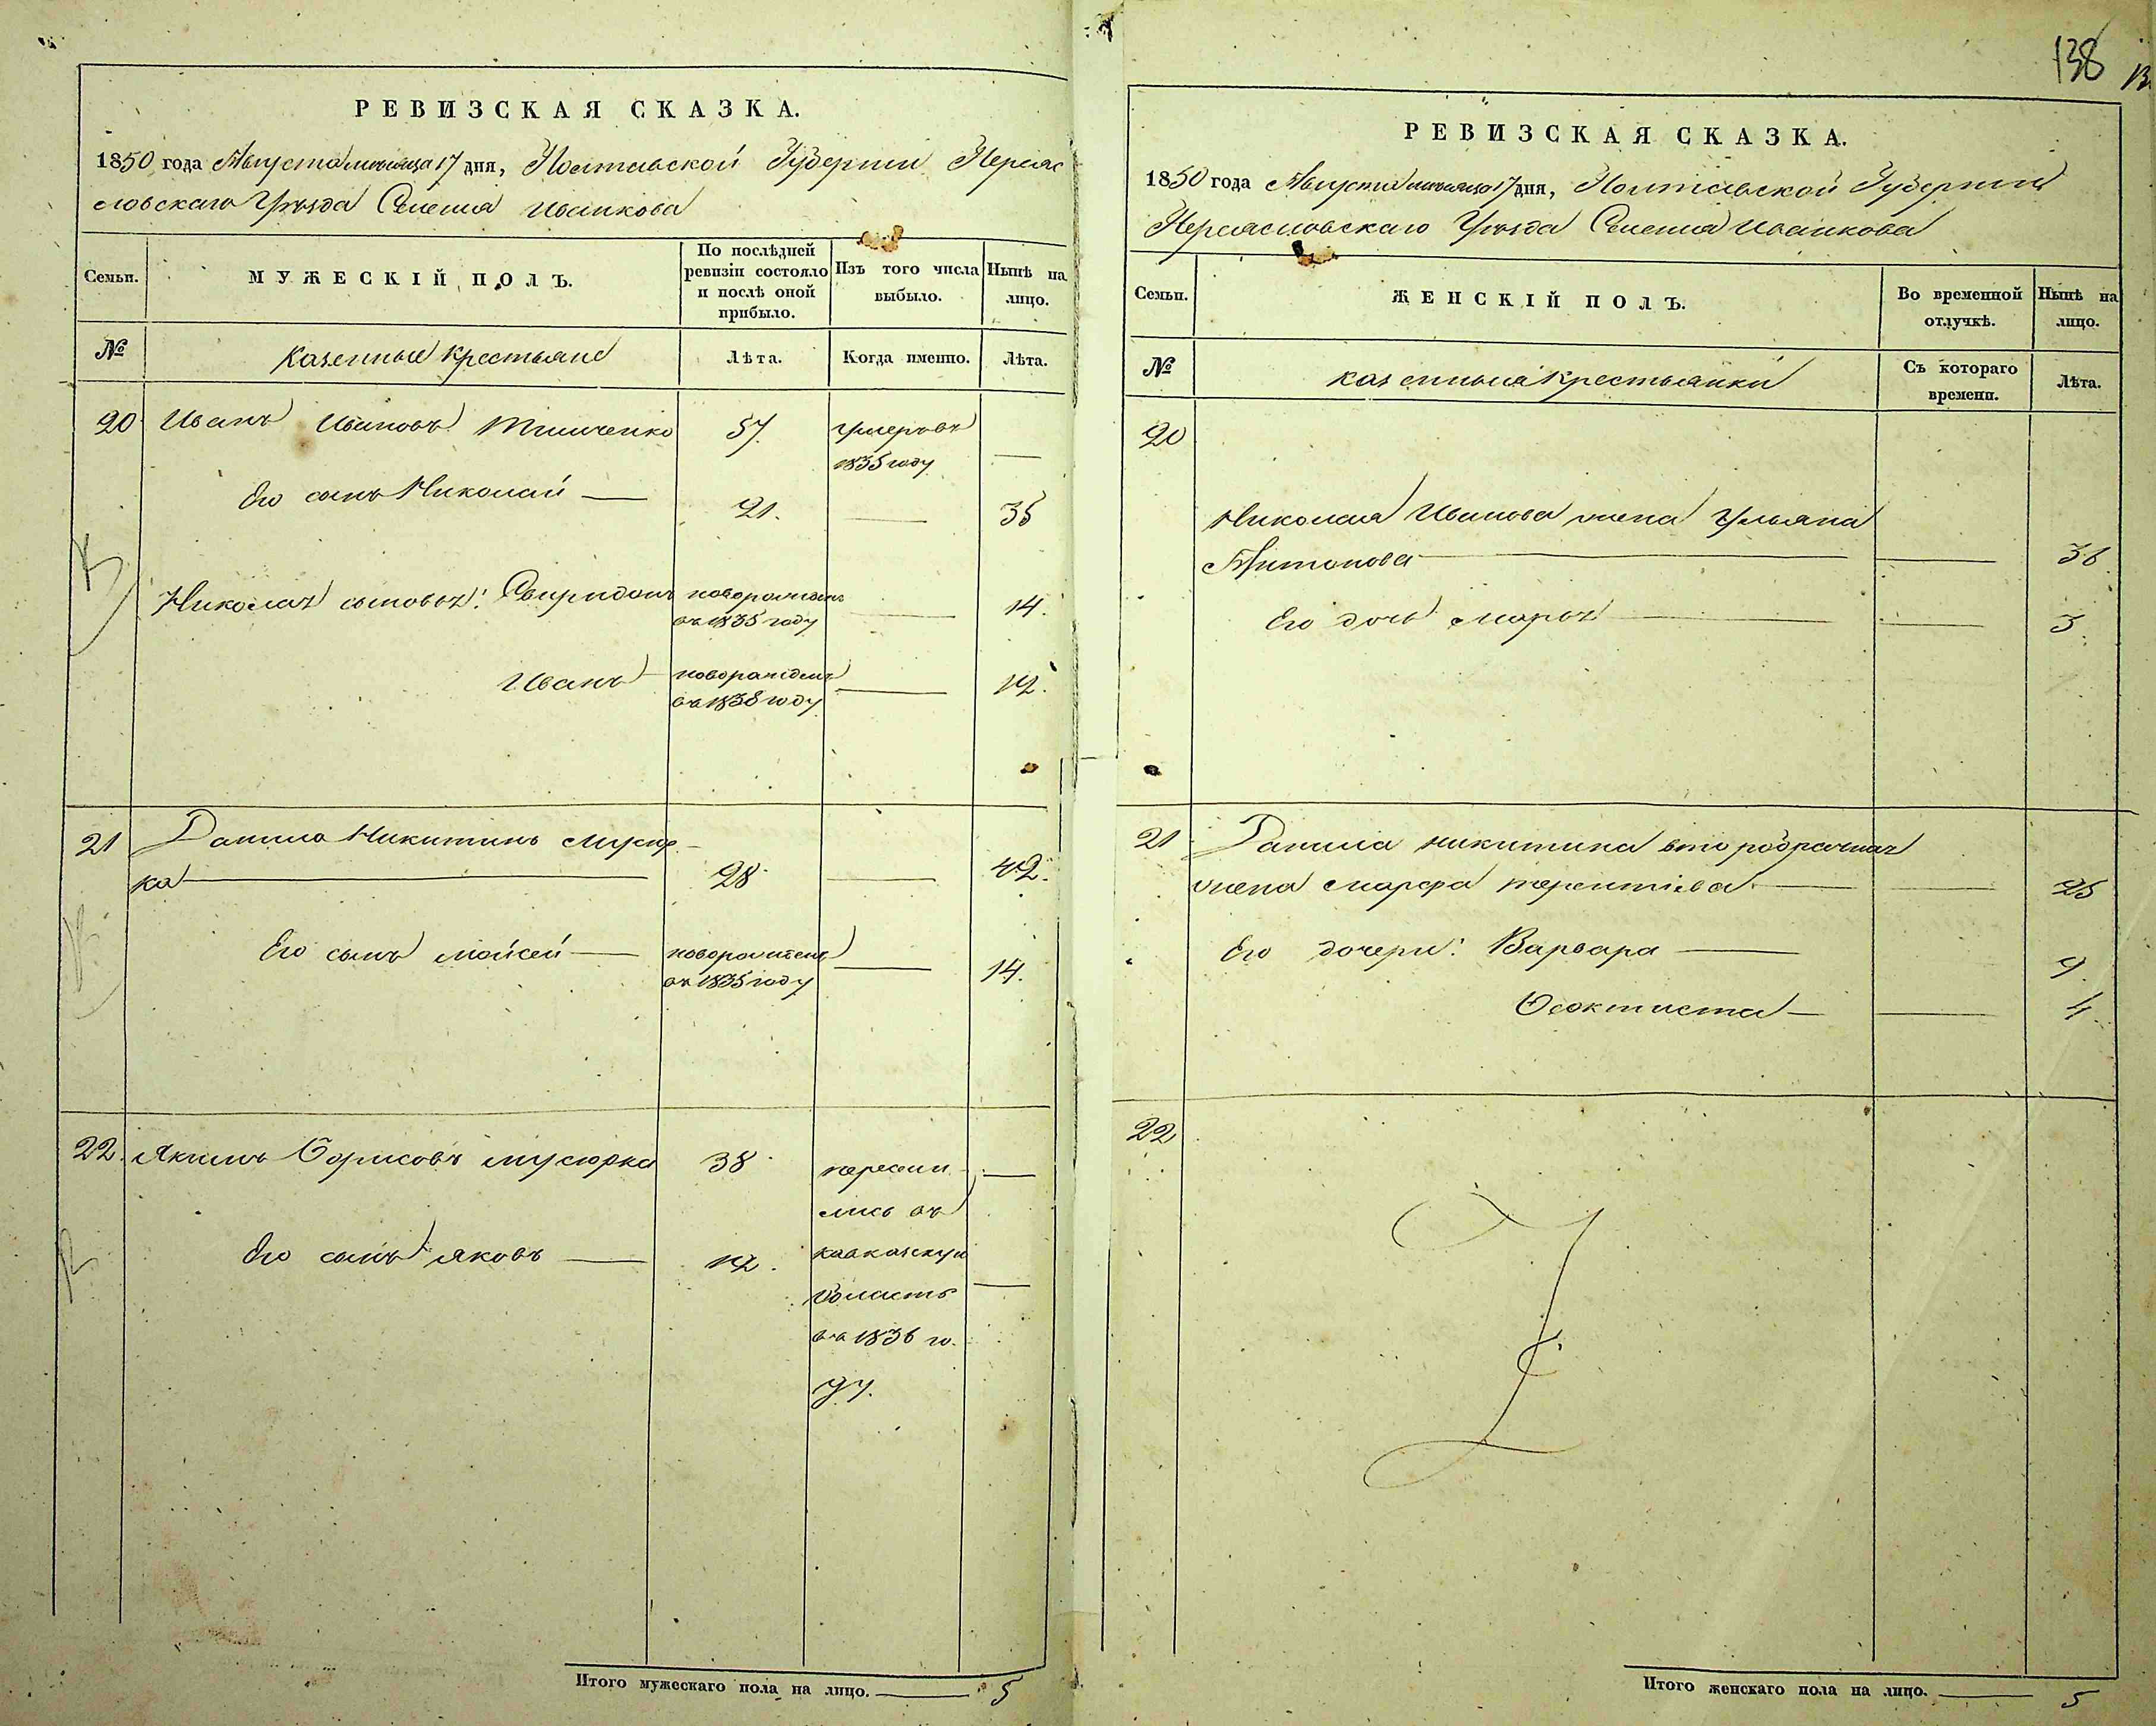 138
РЕВИЗСКАЯ СКАЗКА.
1850 года Августа месяца 17 дня, Полтавской Губернии Переяс
ловскаго Уезда Селения Иванкова
Семьи.
МУЖЕСКІЙ ПОЛЪ.
По послѣдней ревизіи состояло и послѣ оной прибыло.
Изъ того числа выбыло.
Нынѣ на лицо.
№
Казенные крестьяне
Лѣта.
Когда именно.
Лѣта.
20 Иванъ Ивановъ Тимченко 57. умеръ въ
1835 году —
Его сынъ Николай — 21. — 35
Николая сыновья: Свиридонъ новорожденъ
въ 1835 году — 14.
Иванъ новорожденъ
въ 1838 году — 12.
21 Данило Никитинъ Мусюр
ка — 28 — 42.
Его сынъ Мойсей — новорожденъ
въ 1835 году — 14.
22. Якимъ Борисовъ Мусюрка 38 пересели —
лись въ
Его сынъ Яковъ — 12. кавказскую
область —
въ 1836 го
ду.
Итого мужескаго пола на лицо. — 5
РЕВИЗСКАЯ СКАЗКА.
1850 года Августа месяца 17 дня, Полтавской Губернии
Переясловскаго Уезда Селения Иванкова
Семьи.
ЖЕНСКІЙ ПОЛЪ.
Во временной отлучкѣ.
Нынѣ на лицо.
№
казенныя крестьянки
Съ котораго времени.
Лѣта.
20
Николая Иванова жена Ульяна
Антонова — — 36
Его дочь Марья — — 3
21 Данила Никитина второбрачная
жена Марфа Терентіева — — 25
Его дочери: Варвара — 9
Феоктиста — — 4
22
Итого женскаго пола на лицо. — 5